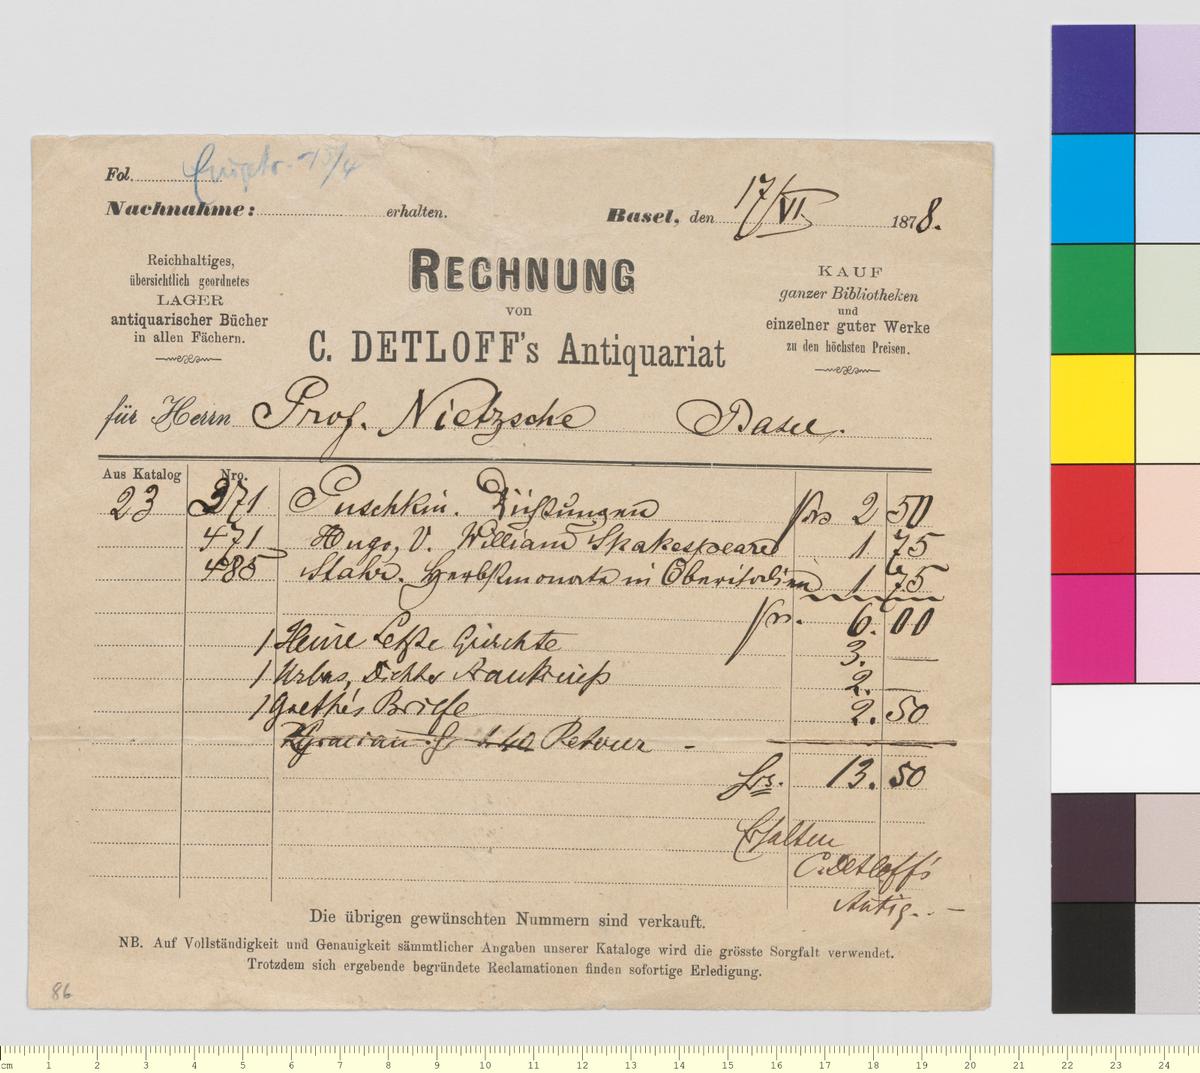 Fol.
Nachnahme: erhalten.
Basel, den 17/VI. 1878.
Reichhaltiges,
übersichtlich geordnetes
LAGER
antiquarischer Bücher
in allen Fächern.
RECHNUNG
von
C. DETLOFF's Antiquariat
KAUF
ganzer Bibliotheken
und
einzelner guter Werke
zu den höchsten Preisen.
für Herrn Prof. Nietzsche Basel.
Aus Katalog Nro.
23 371 Puschkin. Dichtungen frs 2 50
471 Hugo, V. William Shakespeare 1 75
485 Stahr. Herbstmonate in Oberitalien 1 75
frs. 6.00
1 Heine Letzte Gedichte 3. —
1 Dichter 2. —
1 Goethe's Briefe 2.50
Retour -
frs. 13.50
Erhalten
C. Detloff's
Antiq. . —
Die übrigen gewünschten Nummern sind verkauft.
NB. Auf Vollständigkeit und Genauigkeit sämmtlicher Angaben unserer Kataloge wird die grösste Sorgfalt verwendet.
Trotzdem sich ergebende begründete Reclamationen finden sofortige Erledigung.
86
cm 1 2 3 4 5 6 7 8 9 10 11 12 13 14 15 16 17 18 19 20 21 22 23 24